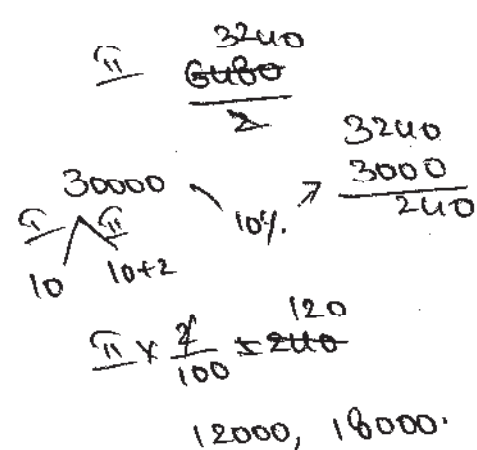 3240
II 6480
2
3240
30000 3000
10% 240
II II
10 10+2
120
II × 2/100 = 240
12000, 18000.